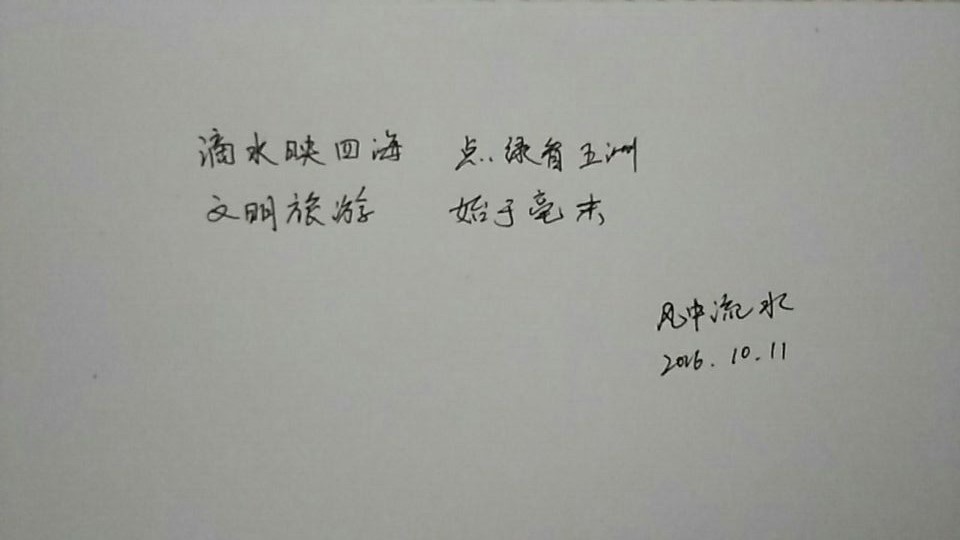 滴水映四海 点绿省五洲
文明旅游 始于毫末
风中流水
2016.10.11